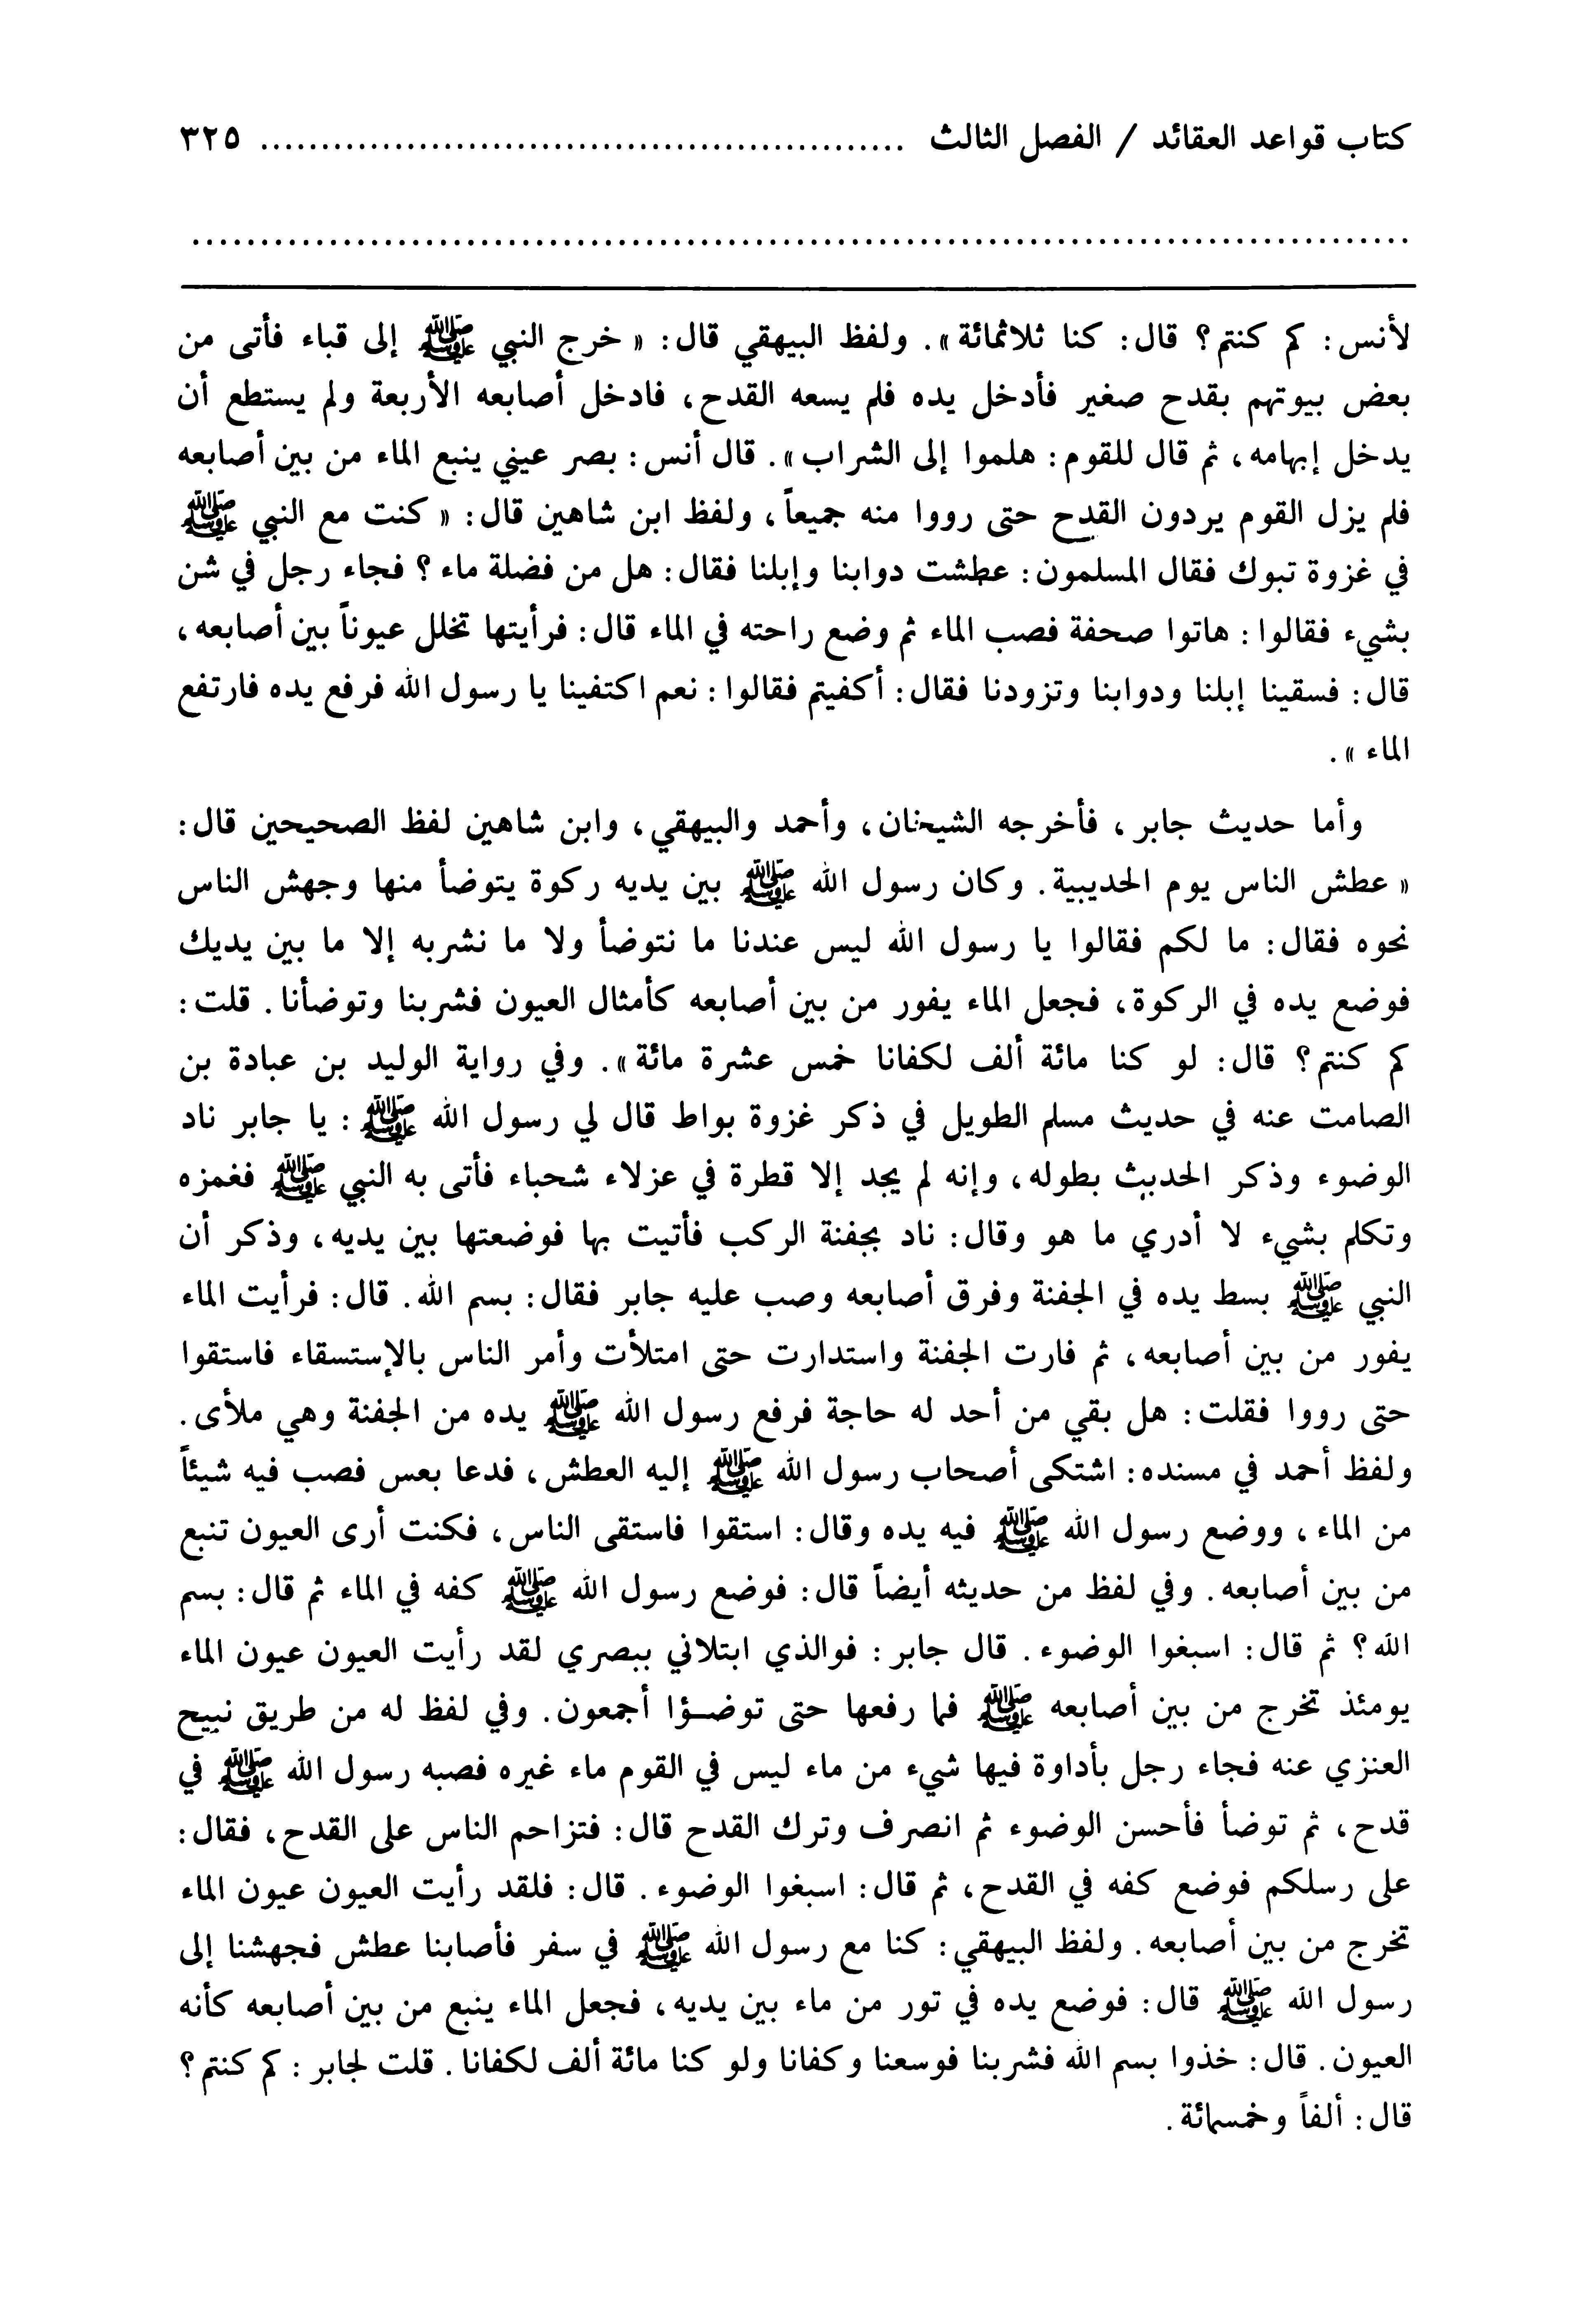 كتاب قواعد العقائد / الفصل الثالث ..................................................... ٣٢٥
..........................................................................................
لأنس: كم كنتم؟ قال: كنا ثلاثمائة». ولفظ البيهقي قال: «خرج النبي ﷺ إلى قباء فأتى من
بعض بيوتهم بقدح صغير فأدخل يده فلم يسعه القدح، فادخل أصابعه الأربعة ولم يستطع أن
يدخل إبهامه، ثم قال للقوم: هلموا إلى الشراب». قال أنس: بصر عيني ينبع الماء من بين أصابعه
فلم يزل القوم يردون القدح حتى رووا منه جميعاً، ولفظ ابن شاهين قال: «كنت مع النبي ﷺ
في غزوة تبوك فقال المسلمون: عطشت دوابنا وإبلنا فقال: هل من فضلة ماء؟ فجاء رجل في شن
بشيء فقالوا: هاتوا صحفة فصب الماء ثم وضع راحته في الماء قال: فرأيتها تخلل عيوناً بين أصابعه،
قال: فسقينا إبلنا ودوابنا وتزودنا فقال: أكفيتم فقالوا: نعم اكتفينا يا رسول الله فرفع يده فارتفع
الماء».
وأما حديث جابر، فأخرجه الشيخان، وأحمد والبيهقي، وابن شاهين لفظ الصحيحين قال:
«عطش الناس يوم الحديبية. وكان رسول الله ﷺ بين يديه ركوة يتوضأ منها وجهش الناس
نحوه فقال: ما لكم فقالوا يا رسول الله ليس عندنا ما نتوضأ ولا ما نشربه إلا ما بين يديك
فوضع يده في الركوة، فجعل الماء يفور من بين أصابعه كأمثال العيون فشربنا وتوضأنا. قلت:
كم كنتم؟ قال: لو كنا مائة ألف لكفانا خمس عشرة مائة». وفي رواية الوليد بن عبادة بن
الصامت عنه في حديث مسلم الطويل في ذكر غزوة بواط قال لي رسول الله ﷺ: يا جابر ناد
الوضوء وذكر الحديث بطوله، وإنه لم يجد إلا قطرة في عزلاء شحباء فأتى به النبي ﷺ فغمزه
وتكلم بشيء لا أدري ما هو وقال: ناد بجفنة الركب فأتيت بها فوضعتها بين يديه، وذكر أن
النبي ﷺ بسط يده في الجفنة وفرق أصابعه وصب عليه جابر فقال: بسم الله. قال: فرأيت الماء
يفور من بين أصابعه، ثم فارت الجفنة واستدارت حتى امتلأت وأمر الناس بالإستسقاء فاستقوا
حتى رووا فقلت: هل بقي من أحد له حاجة فرفع رسول الله ﷺ يده من الجفنة وهي ملأى.
ولفظ أحمد في مسنده: اشتكى أصحاب رسول الله ﷺ إليه العطش، فدعا بعس فصب فيه شيئاً
من الماء، ووضع رسول الله ﷺ فيه يده وقال: استقوا فاستقى الناس، فكنت أرى العيون تنبع
من بين أصابعه. وفي لفظ من حديثه أيضاً قال: فوضع رسول الله ﷺ كفه في الماء ثم قال: بسم
الله؟ ثم قال: اسبغوا الوضوء. قال جابر: فوالذي ابتلاني ببصري لقد رأيت العيون عيون الماء
يومئذ تخرج من بين أصابعه ﷺ فما رفعها حتى توضـؤا أجمعون. وفي لفظ له من طريق نبيح
العنزي عنه فجاء رجل بأداوة فيها شيء من ماء ليس في القوم ماء غيره فصبه رسول الله ﷺ في
قدح، ثم توضأ فأحسن الوضوء ثم انصرف وترك القدح قال: فتزاحم الناس على القدح، فقال:
على رسلكم فوضع كفه في القدح، ثم قال: اسبغوا الوضوء. قال: فلقد رأيت العيون عيون الماء
تخرج من بين أصابعه. ولفظ البيهقي: كنا مع رسول الله ﷺ في سفر فأصابنا عطش فجهشنا إلى
رسول الله ﷺ قال: فوضع يده في تور من ماء بين يديه، فجعل الماء ينبع من بين أصابعه كأنه
العيون. قال: خذوا بسم الله فشربنا فوسعنا وكفانا ولو كنا مائة ألف لكفانا. قلت لجابر: كم كنتم؟
قال: ألفاً وخمسمائة.